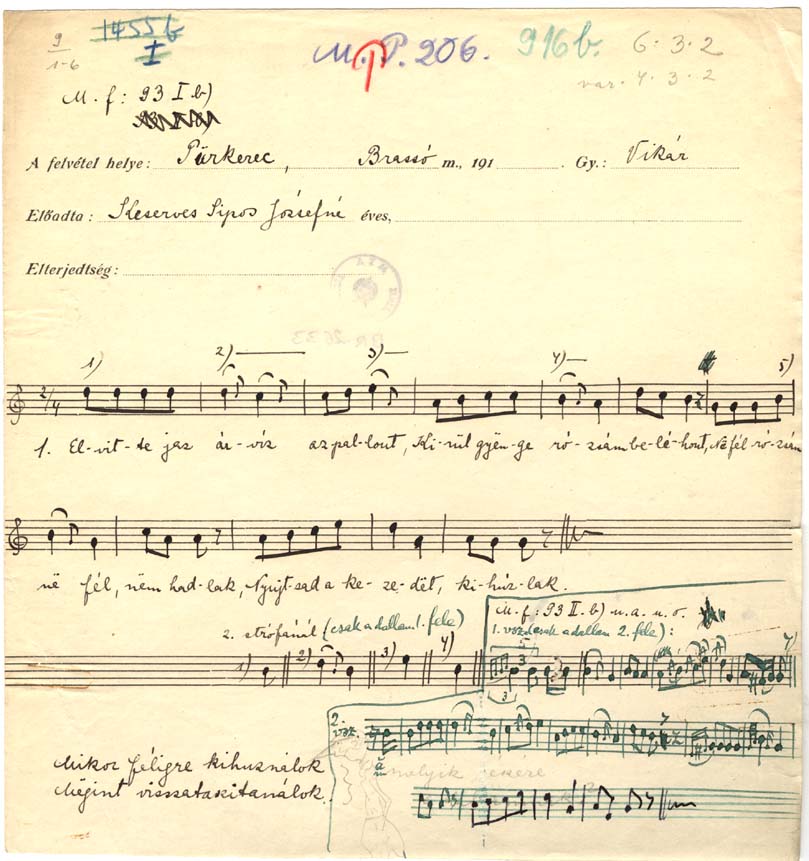 9 14556 M. P. 206. 916b. 6·3·2
1-6 I var. 4·3·2
M. f: 93 I b)
A felvétel helye: Pürkerec, Brassó m., 191 . Gy.: Vikár
Előadta: Keserves Sipos Józsefné éves,
Elterjedtség:
1) 2) 3) 4) 5)
2/4
1. El-vit-te jaz ár-víz az pal-lout, Ki-rül gyën-ge ró-zsám be-lé-hout, Në fél ró-zsám
në fél, nëm had-lak, Nyujt-sad a ke-ze-dët, ki-húz-lak.
M. f: 93 II. b) u. a. u. o.
2. strófánál (csak a dallam 1. fele) 1. vsz. (csak a dallam 2. fele):
1) 2) 3) 4) 7)
3
2. vsz.
Mikor féligre kihuználok
Mëgint visszataszitanálok.
melyik